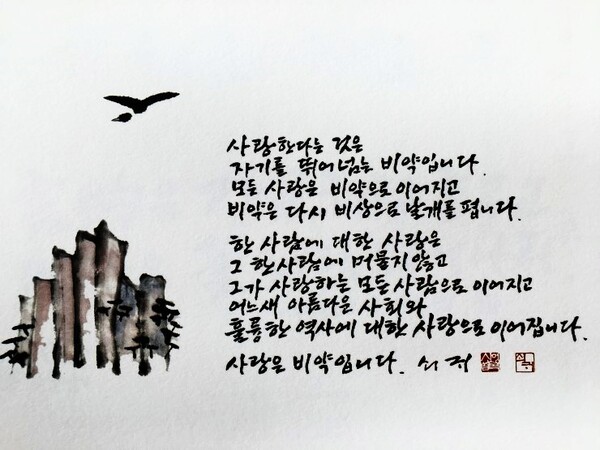 사랑한다는 것은
자기를 뛰어넘는 비약입니다.
모든 사랑은 비약으로 이어지고
비약은 다시 비상으로 날개를 폅니다.
한 사람에 대한 사랑은
그 한사람에 머물지 않고
그가 사랑하는 모든 사람으로 이어지고
어느새 아름다운 사회와
훌륭한 역사에 대한 사랑으로 이어집니다.
사랑은 비약입니다. 쇠귀